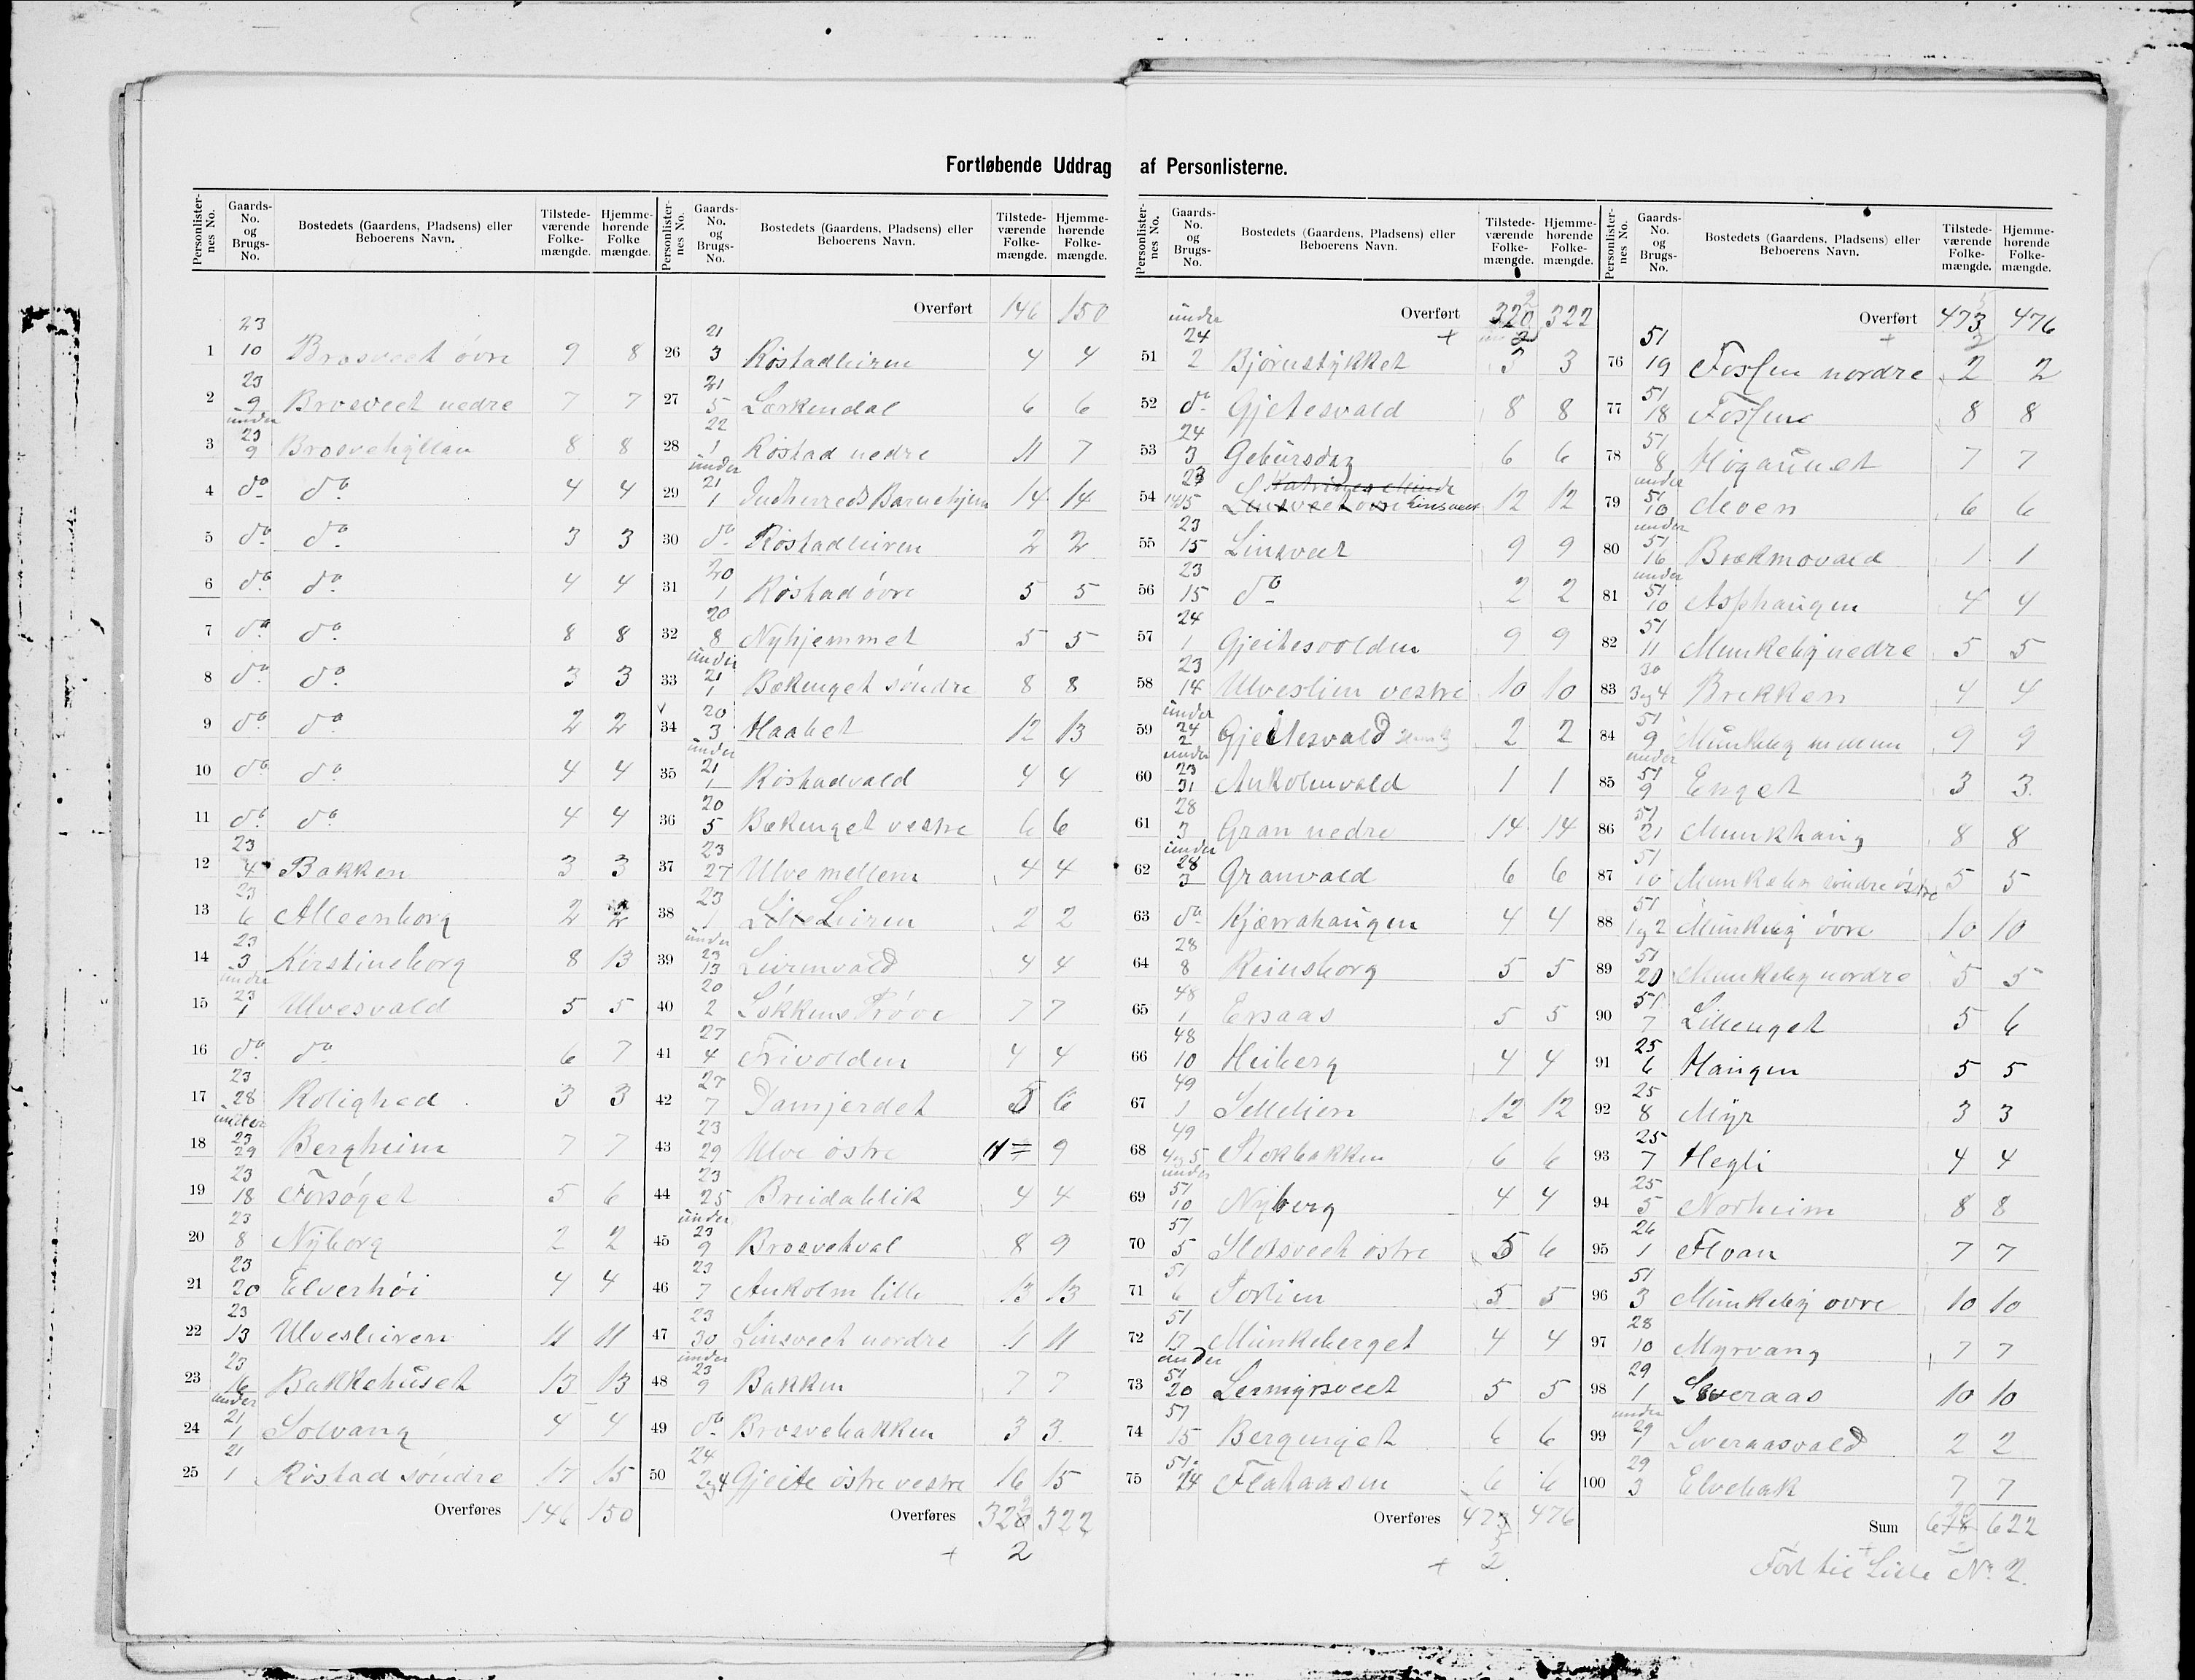 Fortløbende Uddrag af Personlisterne.
Personlister-nes No. | Gaards-No. og Brugs-No. | Bostedets (Gaardens, Pladsens) eller Beboerens Navn. | Tilstede-værende Folke-mængde. | Hjemme-hørende Folke mængde.
1 | 23 10 | Brosveet övre | 9 | 8
2 | 23 9 | Brosveet nedre | 7 | 7
3 | under 23 9 | Brosvehyllan | 8 | 8
4 | do | do | 4 | 4
5 | do | do | 3 | 3
6 | do | do | 4 | 4
7 | do | do | 8 | 8
8 | do | do | 3 | 3
9 | do | do | 2 | 2
10 | do | do | 4 | 4
11 | do | do | 4 | 4
12 | 23 4 | Bakken | 3 | 3
13 | 23 6 | Alleenborg | 2 | 2
14 | 23 3 | Kirstineborg | 8 | 13
15 | under 23 1 | Ulvesvald | 5 | 5
16 | do | do | 6 | 7
17 | 23 28 | Rolighed | 3 | 3
18 | under 23 29 | Bergheim | 7 | 7
19 | 23 18 | Forsøget | 5 | 6
20 | 23 8 | Nyborg | 2 | 2
21 | 23 20 | Elverhöi | 4 | 4
22 | 23 13 | Ulvesleiren | 11 | 11
23 | 23 16 | Bakkehuset | 13 | 13
24 | under 21 1 | Solvang | 4 | 4
25 | 21 1 | Röstad söndre | 17 | 15
Overføres | 146 | 150
Personlister-nes No. | Gaards-No. og Brugs-No. | Bostedets (Gaardens, Pladsens) eller Beboerens Navn. | Tilstede-værende Folke-mængde. | Hjemme-hørende Folke-mængde.
Overført | 146 | 150
26 | 21 3 | Röstadleiren | 4 | 4
27 | 21 5 | Lærkendal | 6 | 6
28 | 22 1 | Röstad nedre | 11 | 7
29 | under 21 1 | Indherreds Barnehjem | 14 | 14
30 | do | Röstadleiren | 2 | 2
31 | 20 1 | Röstad övre | 5 | 5
32 | 20 8 | Nyhjemmet | 5 | 5
33 | under 21 1 | Bækenget söndre | 8 | 8
34 | 20 3 | Haabet | 12 | 13
35 | under 21 1 | Röstadvald | 4 | 4
36 | 20 5 | Bækenget vestre | 6 | 6
37 | 23 27 | Ulve mellem | 4 | 4
38 | 23 1 | Lille Leiren | 2 | 2
39 | under 23 13 | Leirenvald | 4 | 4
40 | 20 2 | Lökkens Pröve | 7 | 7
41 | 27 4 | Trivolden | 4 | 4
42 | 27 7 | Damjerdet | 5 | 6
43 | 23 29 | Ulve östre | 11 | 9
44 | 23 25 | Breidablik | 4 | 4
45 | under 23 9 | Brosvehval | 8 | 9
46 | 23 7 | Ankolm lille | 13 | 13
47 | 23 30 | Linsveet nordre | 11 | 11
48 | under 23 9 | Bakken | 7 | 7
49 | do | Brosvebakken | 3 | 3
50 | 24 2og4 | Gjeite östre vestre | 16 | 15
Overføres | 320 2 | 322
+ 2
Personlister-nes No. | Gaards-No. og Brugs-No. | Bostedets (Gaardens, Pladsens) eller Beboerens Navn. | Tilstede-værende Folke-mængde. | Hjemme-hørende Folke-mængde.
Overført | 320 2 | 322
+ 2
51 | under 24 2 | Bjørnstykket | 3 | 3
52 | do | Gjetesvald | 8 | 8
53 | 24 3 | Gebursdag | 6 | 6
54 | 23 14 15 | Linsveet | 12 | 12
55 | 23 15 | Linsveet | 9 | 9
56 | 23 15 | do | 2 | 2
57 | 24 1 | Gjeitesvolden | 9 | 9
58 | 23 14 | Ulveslien vestre | 10 | 10
59 | under 24 2 | Gjeitesvald | 2 | 2
60 | under 23 31 | Ankolmvald | 1 | 1
61 | 28 3 | Gran nedre | 14 | 14
62 | under 28 3 | Granvald | 6 | 6
63 | do | Kjærrahaugen | 4 | 4
64 | 28 8 | Reinsborg | 5 | 5
65 | 48 1 | Ersaas | 5 | 5
66 | 48 10 | Heiberg | 4 | 4
67 | 49 1 | Sellelien | 12 | 12
68 | 49 4og5 | Stokbakken | 6 | 6
69 | under 51 10 | Nyberg | 4 | 4
70 | 51 5 | Slotsveet östre | 5 | 6
71 | 51 6 | Portien | 5 | 5
72 | 51 17 | Munkeberget | 4 | 4
73 | under 51 20 | Lermyrsveet | 5 | 5
74 | 51 15 | Bergenget | 6 | 6
75 | 51 24 | Flahaasen | 6 | 6
Overføres | 473 5 | 476
+ 2
Personlister-nes No. | Gaards-No. og Brugs-No. | Bostedets (Gaardens, Pladsens) eller Beboerens Navn. | Tilstede-værende Folke-mængde. | Hjemme-hørende Folke-mængde.
Overført | 473 5 | 476
+ 2
76 | 51 19 | Fossen nordre | 2 | 2
77 | 51 18 | Fossen | 8 | 8
78 | 51 8 | Högaunet | 7 | 7
79 | under 51 10 | Moen | 6 | 6
80 | under 51 16 | Brekmovald | 1 | 1
81 | under 51 10 | Asphaugen | 4 | 4
82 | 51 11 | Munkeby nedre | 5 | 5
83 | 30 3og4 | Brekken | 4 | 4
84 | 51 9 | Munkeby mellem | 9 | 9
85 | under 51 9 | Enget | 3 | 3
86 | 51 21 | Munkhaug | 8 | 8
87 | 51 10 | Munkeby söndre östre | 5 | 5
88 | 51 1og2 | Munkeby övre | 10 | 10
89 | 51 20 | Munkeby nordre | 5 | 5
90 | 51 7 | Lillenget | 5 | 6
91 | 25 6 | Haugen | 5 | 5
92 | 25 8 | Myr | 3 | 3
93 | 25 7 | Hegli | 4 | 4
94 | 25 5 | Norheim | 8 | 8
95 | 26 1 | Floan | 7 | 7
96 | 51 3 | Munkeby ovre | 10 | 10
97 | 28 10 | Myrvang | 7 | 7
98 | 29 1 | Loveraas | 10 | 10
99 | under 29 1 | Loveraasvald | 2 | 2
100 | 29 3 | Elvebak | 7 | 7
Sum | 618 20 | 622
+ 2
Fört til Liste No 2.